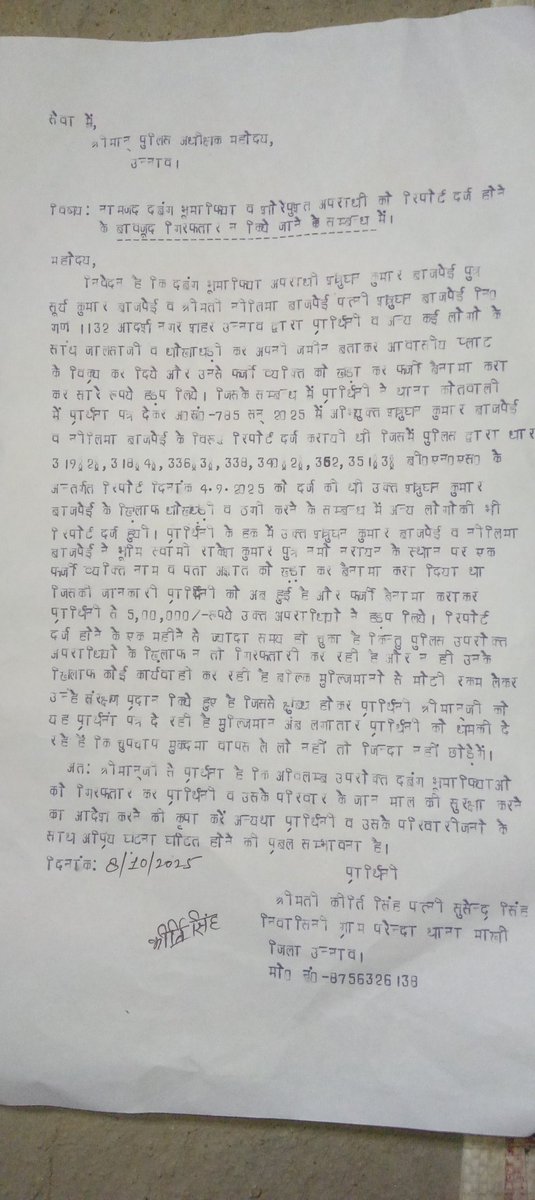 सेवा में,
श्रीमान् पुलिस अधीक्षक महोदय,
उन्नाव।
विषय: नामजद दबंग भूमाफिया व शोरेपुश्त अपराधी को रिपोर्ट दर्ज होने
के बावजूद गिरफ्तार न किये जाने के सम्बन्ध में।
महोदय,
निवेदन है कि दबंग भूमाफिया अपराधी शत्रुघन कुमार बाजपेई पुत्र
सूर्य कुमार बाजपेई व श्रीमती नीलिमा बाजपेई पत्नी शत्रुघन बाजपेई नि0
गण 1132 आदर्श नगर शहर उन्नाव द्वारा प्रार्थिनी व अन्य कई लोगों के
साथ जालसाजी व धोखाधड़ी कर अपनी जमीन बताकर आवासीय प्लाट
के विक्रय कर दिये और उनसे फर्जी व्यक्ति को खड़ा कर फर्जी बैनामा करा
कर सारे रूपये हड़प लिये। जिसके सम्बन्ध में प्रार्थिनी ने थाना कोतवाली
में प्रार्थना पत्र देकर अ0सं0-785 सन् 2025 में अभियुक्त शत्रुघन कुमार बाजपेई
व नीलिमा बाजपेई के विरूद्ध रिपोर्ट दर्ज करायी थी जिसमें पुलिस द्वारा धारा
319(2), 318(4), 336(3), 338, 340(2), 352, 351(3) बी0एन0एस0 के
अन्तर्गत रिपोर्ट दिनांक 4.9.2025 को दर्ज की थी उक्त शत्रुघन कुमार
बाजपेई के खिलाफ धोखाधड़ी व ठगी करने के सम्बन्ध में अन्य लोगों की भी
रिपोर्ट दर्ज हुयी। प्रार्थिनी के हक में उक्त शत्रुघन कुमार बाजपेई व नीलिमा
बाजपेई ने भूमि स्वामी राकेश कुमार पुत्र नमो नरायन के स्थान पर एक
फर्जी व्यक्ति नाम व पता अज्ञात को खड़ा कर बैनामा करा दिया था
जिसकी जानकारी प्रार्थिनी को अब हुई है और फर्जी बैनामा कराकर
प्रार्थिनी से 5,00,000/-रूपये उक्त अपराधियों ने हड़प लिये। रिपोर्ट
दर्ज होने के एक महीने से ज्यादा समय हो चुका है किन्तु पुलिस उपरोक्त
अपराधियों के खिलाफ न तो गिरफ्तारी कर रही है और न ही उनके
खिलाफ कोई कार्यवाही कर रही है बल्कि मुल्जिमानों से मोटी रकम लेकर
उन्हे संरक्षण प्रदान किये हुए है जिससे क्षुब्ध होकर प्रार्थिनी श्रीमानजी को
यह प्रार्थना पत्र दे रही है मुल्जिमान अब लगातार प्रार्थिनी को धमकी दे
रहे हैं कि चुपचाप मुकदमा वापस ले लो नहीं तो जिन्दा नहीं छोड़ेगें।
अत: श्रीमानजी से प्रार्थना है कि अविलम्ब उपरोक्त दबंग भूमाफियाओं
को गिरफ्तार कर प्रार्थिनी व उसके परिवार के जान माल की सुरक्षा करने
का आदेश करने की कृपा करें अन्यथा प्रार्थिनी व उसके परिवारीजनों के
साथ अप्रिय घटना घटित होने की प्रबल सम्भावना है।
दिनांक: 8/10/2025
प्रार्थिनी
श्रीमती कीर्ति सिंह पत्नी सुरेन्द्र सिंह
निवासिनी ग्राम परेन्दा थाना माखी
जिला उन्नाव।
मो0 नं0-8756326138
कीर्ति सिंह